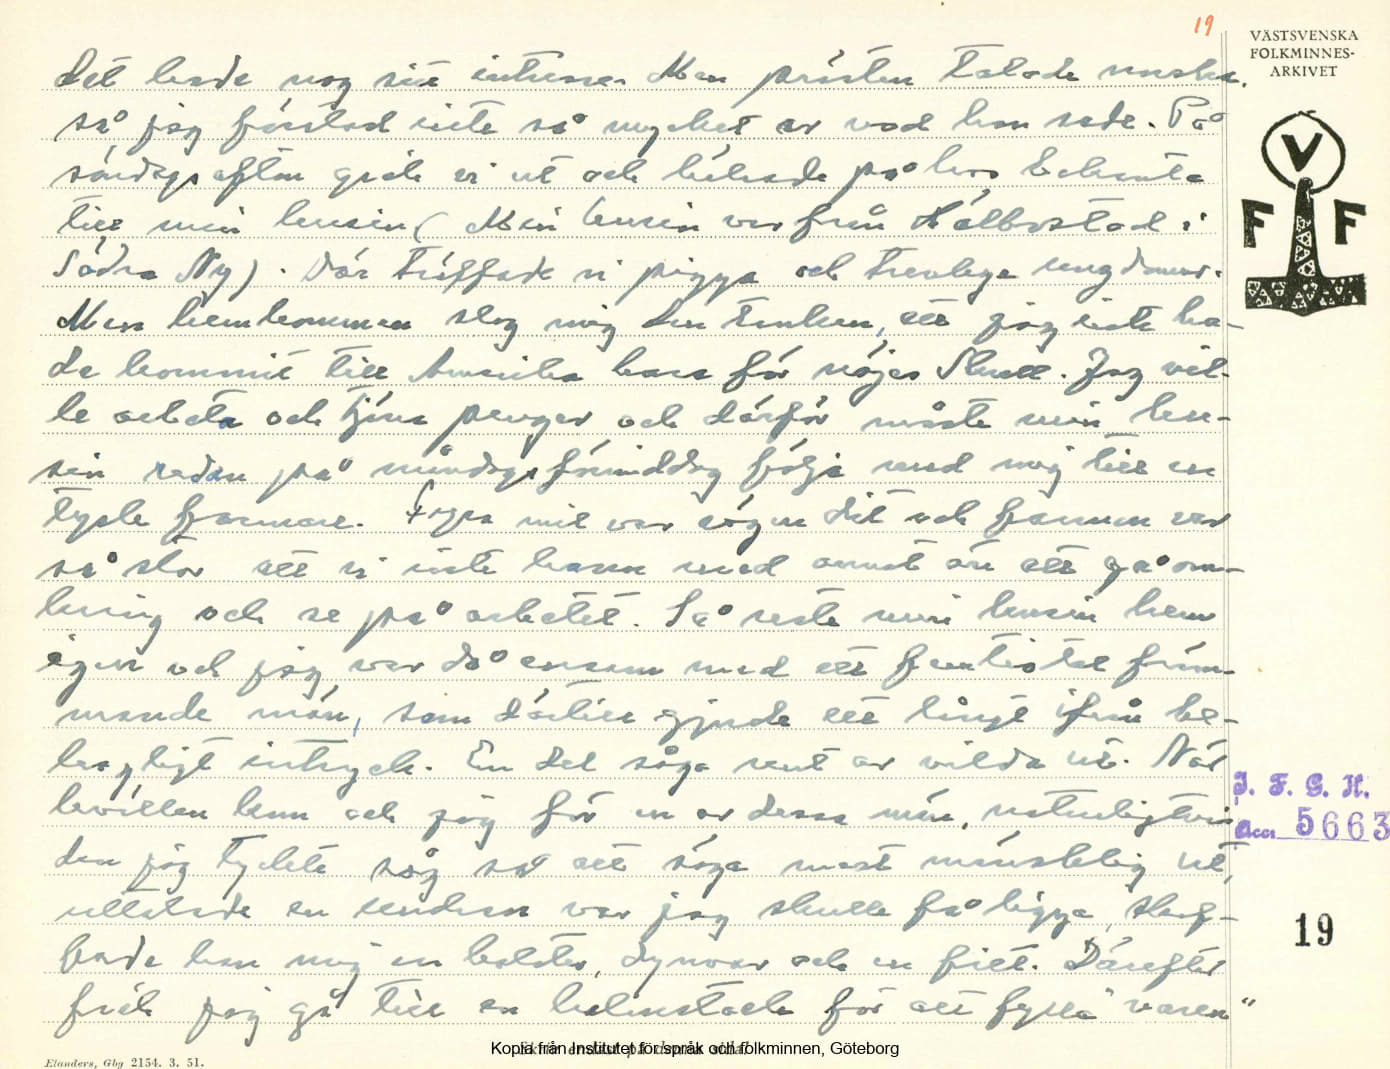 19
VÄSTSVENSKA
FOLKMINNES-
ARKIVET
det hade nog sitt intresse. Men prästen talade norska,
så jag förstod inte så mycket av vad han sade. På
söndags afton gick vi ut och hälsade på hos bekanta
till min kusin (Min kusin var från Hälbostad i
Södra Ny). Där träffade vi pigga och trevliga ungdomar.
Men hemkommen slog mig den tanken, att jag inte ha-
de kommit till Amerika bara för nöjes skull. Jag vil-
le arbeta och tjäna pengar och därför måste min ku-
sin redan på måndags förmiddag följa med mig till en
tysk farmare. Fyra mil var vägen dit och farmen var
så stor att vi inte hann med annat än att gå om-
kring och se på arbetet. Så reste min kusin hem
igen och jag var då ensam med ett femtiotal främ-
mande män, som därtill gjorde ett långt ifrån be-
hagligt intryck. En del såga rent av vilda ut. När
kvällen kom och jag för en av dessa män, naturligtvis
den jag tyckte såg så att säga mest mänsklig ut,
uttalade en undran var jag skulle få ligga, skaf-
fade han mig en bolster, dynvar och en filt. Därefter
fick jag gå till en halmstack för att fylla varen"
V
F F
I. F. G. H.
Acc. 5663
19
Kopia från Institutet för språk och folkminnen, Göteborg
Elanders, Gbg 2154. 3. 51.